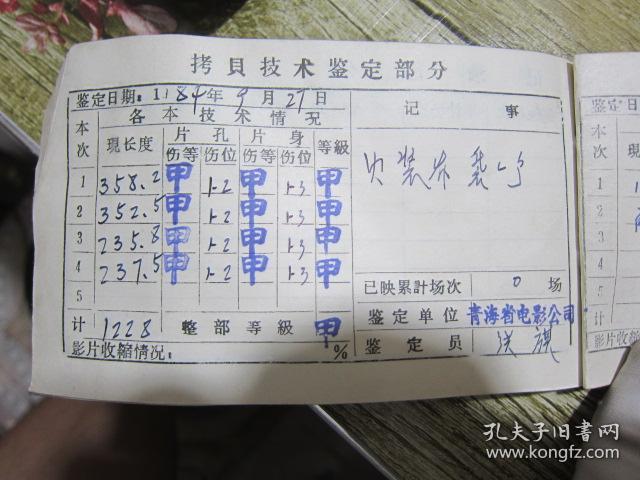 拷貝技术鉴定部分
鉴定日期：1 84年9月27日
记 事
本次 各本技术情况
現长度 片孔 片身 等級
伤等 伤位 伤等 伤位
1 358.2 甲 1-2 甲 1-3 甲
2 352.5 甲 1-2 甲 1-3 甲
3 235.8 甲 1-2 甲 1-3 甲
4 237.5 甲 1-2 甲 1-3 甲
5
装 袋
已映累計场次 0 场
計 1228 整部等級 甲
鉴定单位 青海省电影公司
影片收縮情况： %
鉴定员
鉴定日
本次
現长
1
2
3
4
5
計
影片收縮
孔夫子旧書网
www.kongfz.com